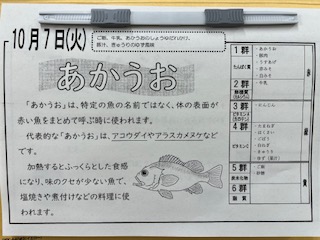 10月7日(火)
ご飯、牛乳、あかうおのしょうゆだれかけ、
豚汁、きゅうりのゆず風味
あかうお
「あかうお」は、特定の魚の名前ではなく、体の表面が
赤い魚をまとめて呼ぶ時に使われます。
代表的な「あかうお」は、アコウダイやアラスカメヌケなど
です。
加熱するとふっくらとした食感
になり、味のクセが少ない魚で、
塩焼きや煮付けなどの料理に使
われます。
1群
たんぱく質
・あかうお
・豚肉
・とうふ
・みそ
2群
・牛乳
3群
・にんじん
4群
ビタミンC
・たまねぎ
・はくさい
・ごぼう
・きゅうり
5群
炭水化物
・ご飯
・砂糖
6群
脂質
赤
緑
黄